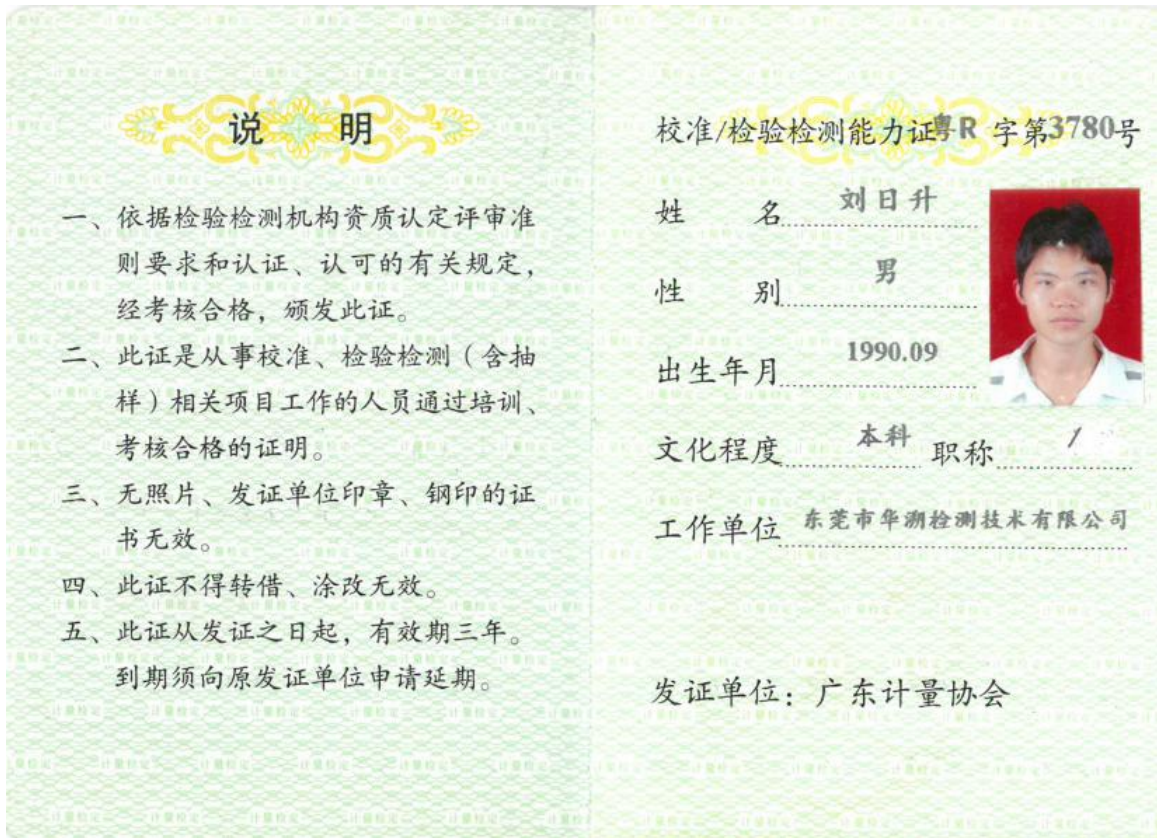 说 明
一、依据检验检测机构资质认定评审准
则要求和认证、认可的有关规定，
经考核合格，颁发此证。
二、此证是从事校准、检验检测（含抽
样）相关项目工作的人员通过培训、
考核合格的证明。
三、无照片、发证单位印章、钢印的证
书无效。
四、此证不得转借、涂改无效。
五、此证从发证之日起，有效期三年。
到期须向原发证单位申请延期。
校准/检验检测能力证粤R 字第3780号
姓 名 刘日升
性 别 男
出生年月 1990.09
文化程度 本科 职称 /
工作单位 东莞市华溯检测技术有限公司
发证单位：广东计量协会